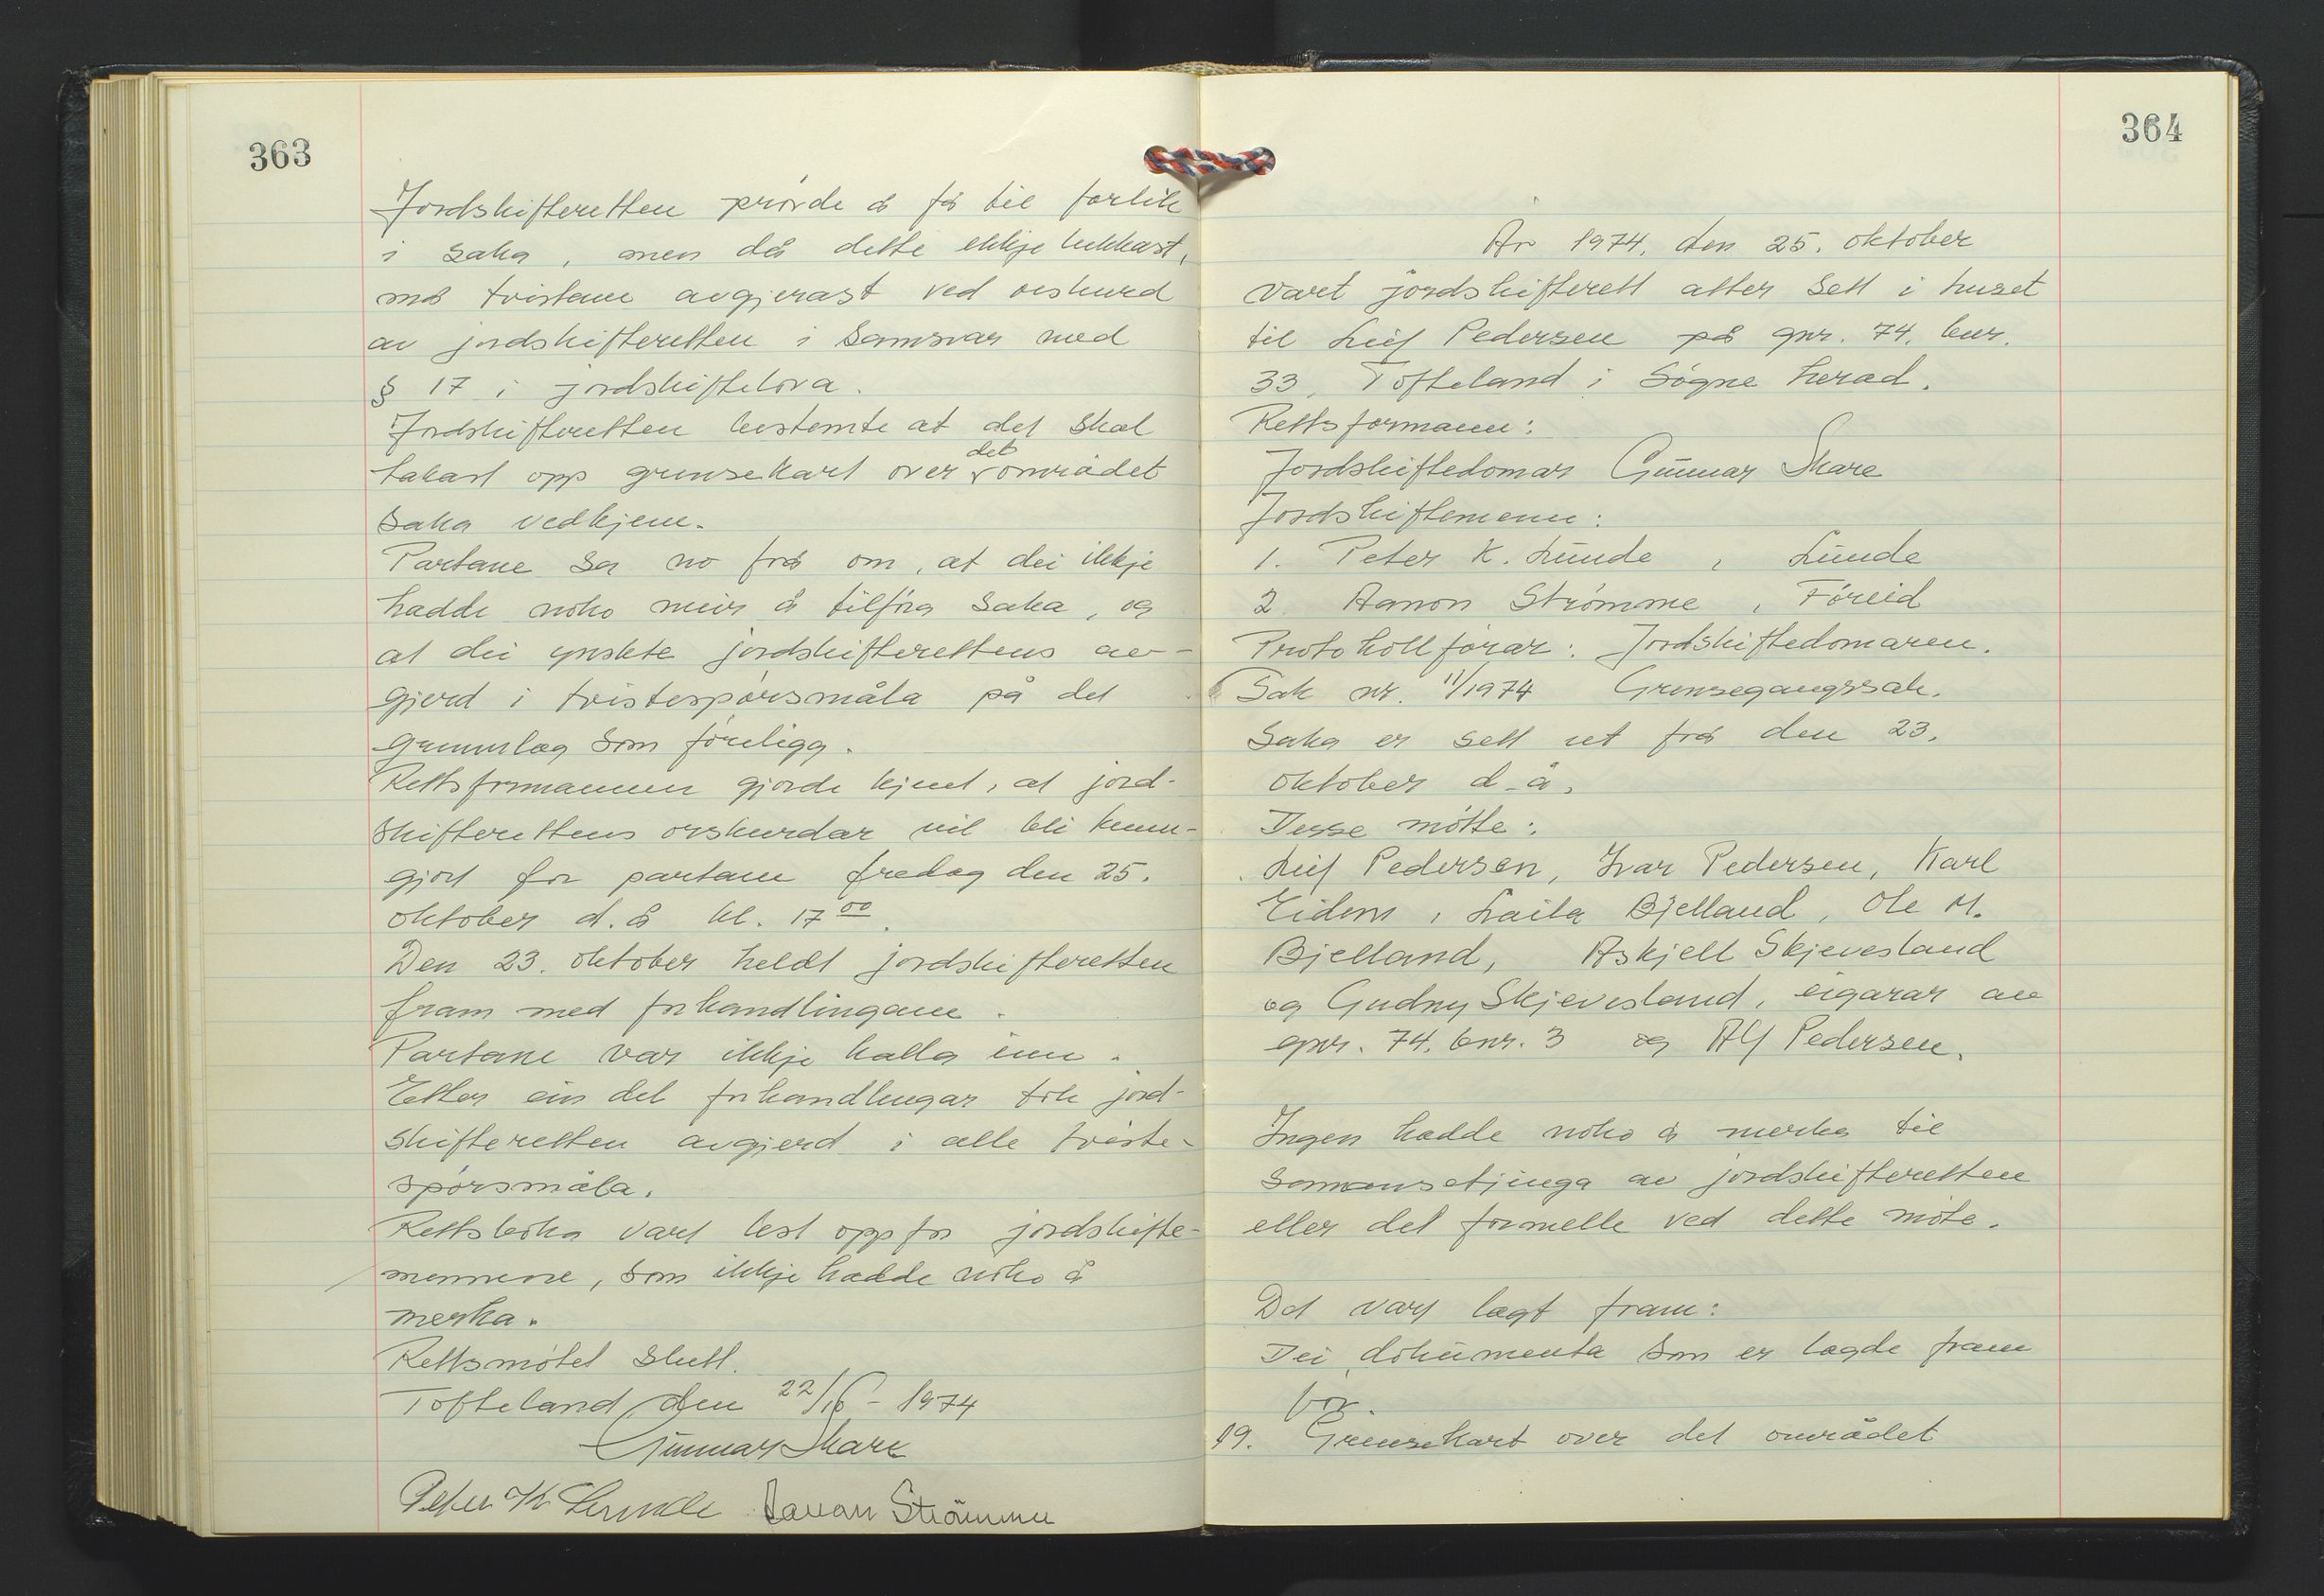 363
Jordskifteretten prövde å få til forlik
i saka, men då dette ikkje lukkast,
må tvistane avgjerast ved orskurd
av jordskifteretten i samsvar med
§ 17 i jordskiftelova.
Jordskifteretten bestemte at det skal
det
takast opp grensekart over området
saka vedkjem.
Partane sa no frå om, at dei ikkje
hadde noko meir å tilföra saka, og
at dei ynskte jordskifterettens av-
gjerd i tvistespörsmåla på det
grunnlag som föreligg.
Rettsformannen gjorde kjent, at jord-
skifterettens orskurdar vil bli kunn-
gjort for partane fredag den 25.
oktober d.å kl. 17 00.
Den 23. oktober heldt jordskifteretten
fram med forhandlingane.
Partane var ikkje kalla inn.
Etter ein del forhandlingar tok jord-
skifteretten avgjerd i alle tviste-
spörsmåla.
Rettsboka vart lest opp for jordskifte-
mennene, som ikkje hadde noko å
merka.
Rettsmötet slutt.
Tofteland, den 22/10 - 1974
Gunnar Skare
Peter K Lunde Aanon Strömme
364
År 1974, den 25. oktober
vart jordskifterett atter sett i huset
til Leif Pedersen på gnr. 74, bnr.
33, Tofteland i Sögne herad.
Rettsformann:
Jordskiftedomar Gunnar Skare
Jordskiftemenn:
1. Peter K. Lunde, Lunde
2. Aanon Strömme, Föreid
Protokollförar: Jordskiftedomaren.
Sak nr. 11/1974 Grensegangssak.
Saka er sett ut frå den 23.
oktober d.å.
Desse mötte:
Leif Pedersen, Ivar Pedersen, Karl
Eidem, Laila Bjelland, Ole M.
Bjelland, Askjell Skjevesland
og Gudny Skjevesland, eigarar av
gnr. 74, bnr. 3 og Alf Pedersen.
Ingen hadde noko å merka til
samansetjinga av jordskifteretten
eller det formelle ved dette möte.
Det vart lagt fram:
Dei dokumenta som er lagde fram
för.
19. Grensekart over det området